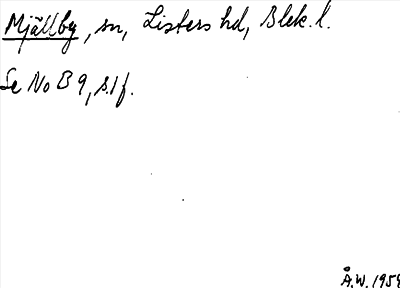 Mjällby, sn, Listers hd, Blek. l.
Se No B 9, s. 1 f.
Å.W. 1959